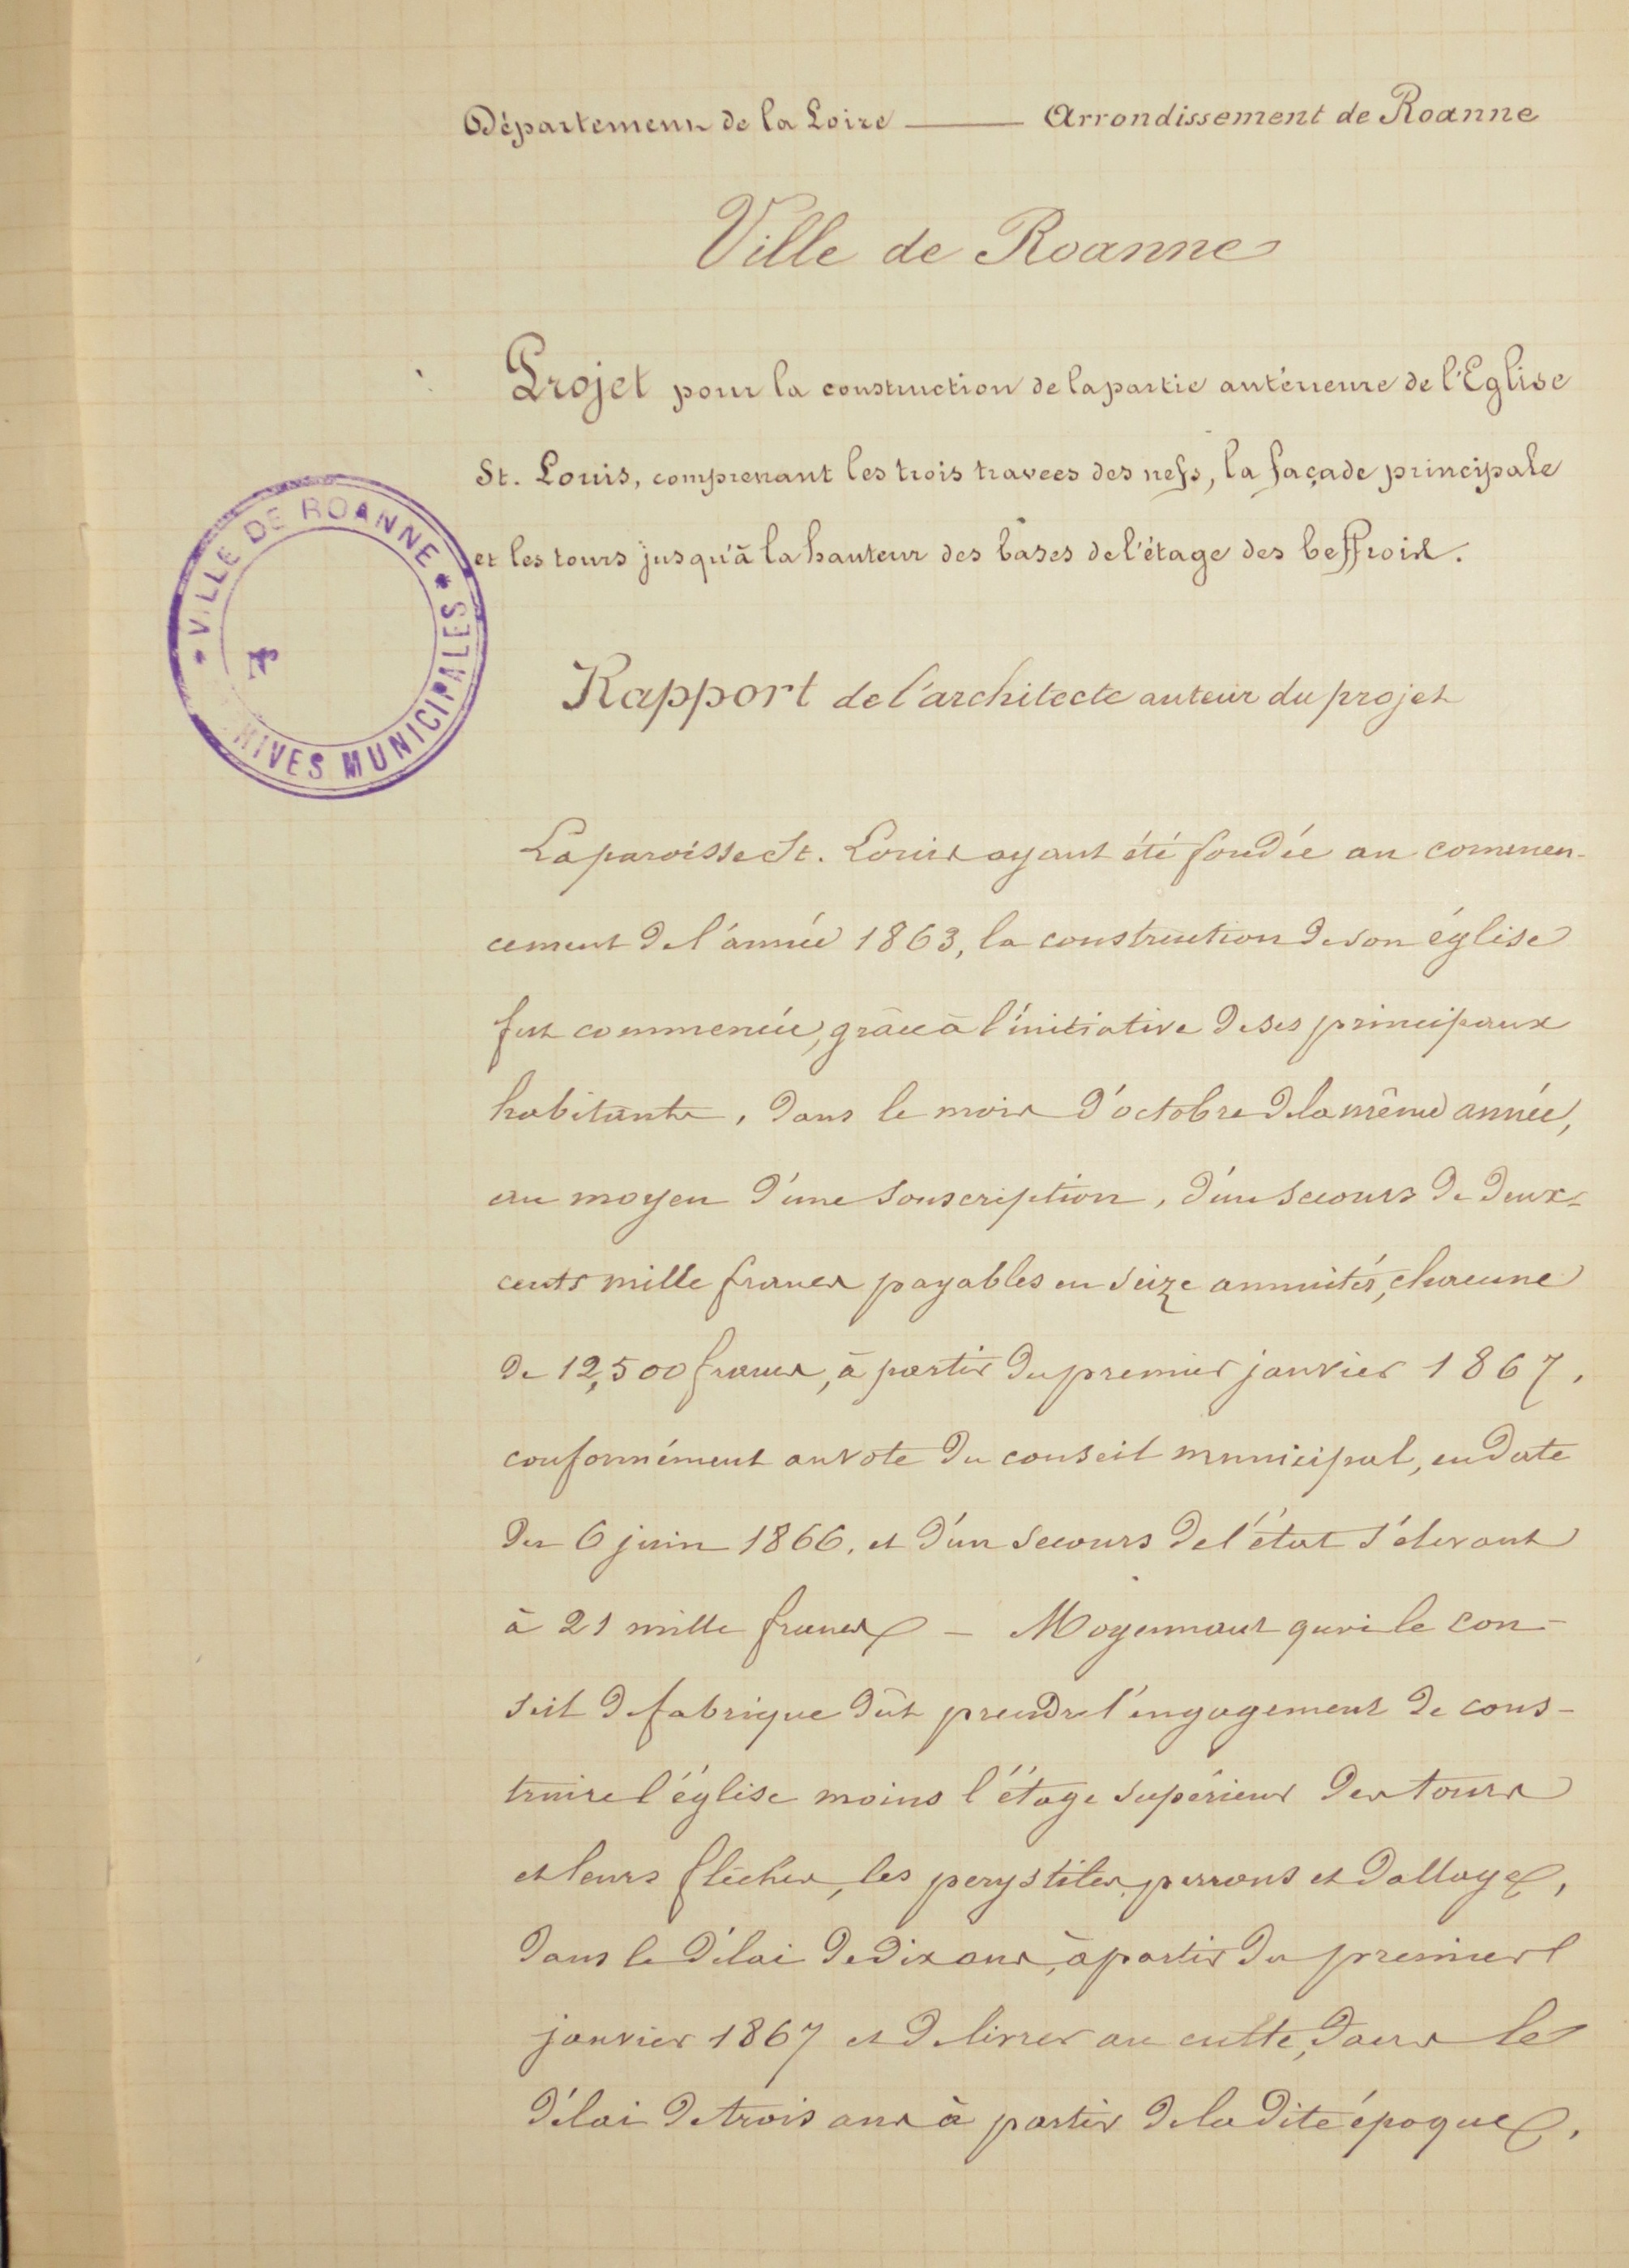 Département de la Loire —— Arrondissement de Roanne
Ville de Roanne
Projet pour la construction de la partie antérieure de l'Eglise
St. Louis, comprenant les trois travees des nefs, la façade principale
et les tours jusqu'à la hauteur des bases de l'étage des beffrois.
* VILLE DE ROANNE *
HIVES MUNICIPALES
Rapport de l'architecte auteur du projet
La paroisse St. Louis ayant été fondée au commen-
cement de l'année 1863, la construction de son église
fut commencée, grâce à l'initiative de ses principaux
habitants, dans le mois d'octobre de la même année,
au moyen d'une souscription, d'un secours de deux-
cents mille francs payables en seize annuités, chacune
de 12,500 francs, à partir du premier janvier 1867,
conformément au vote du conseil municipal, en date
du 6 juin 1866, et d'un secours de l'état s'élevant
à 21 mille francs — Moyennant quoi le con-
seil de fabrique dût prendre l'engagement de cons-
truire l'église moins l'étage supérieur des tours
et leurs flèches, les perystiles, perrons et dallages,
dans le délai de dix ans, à partir du premier
janvier 1867 et de livrer au culte, dans le
délai de trois ans à partir de la dite époque,